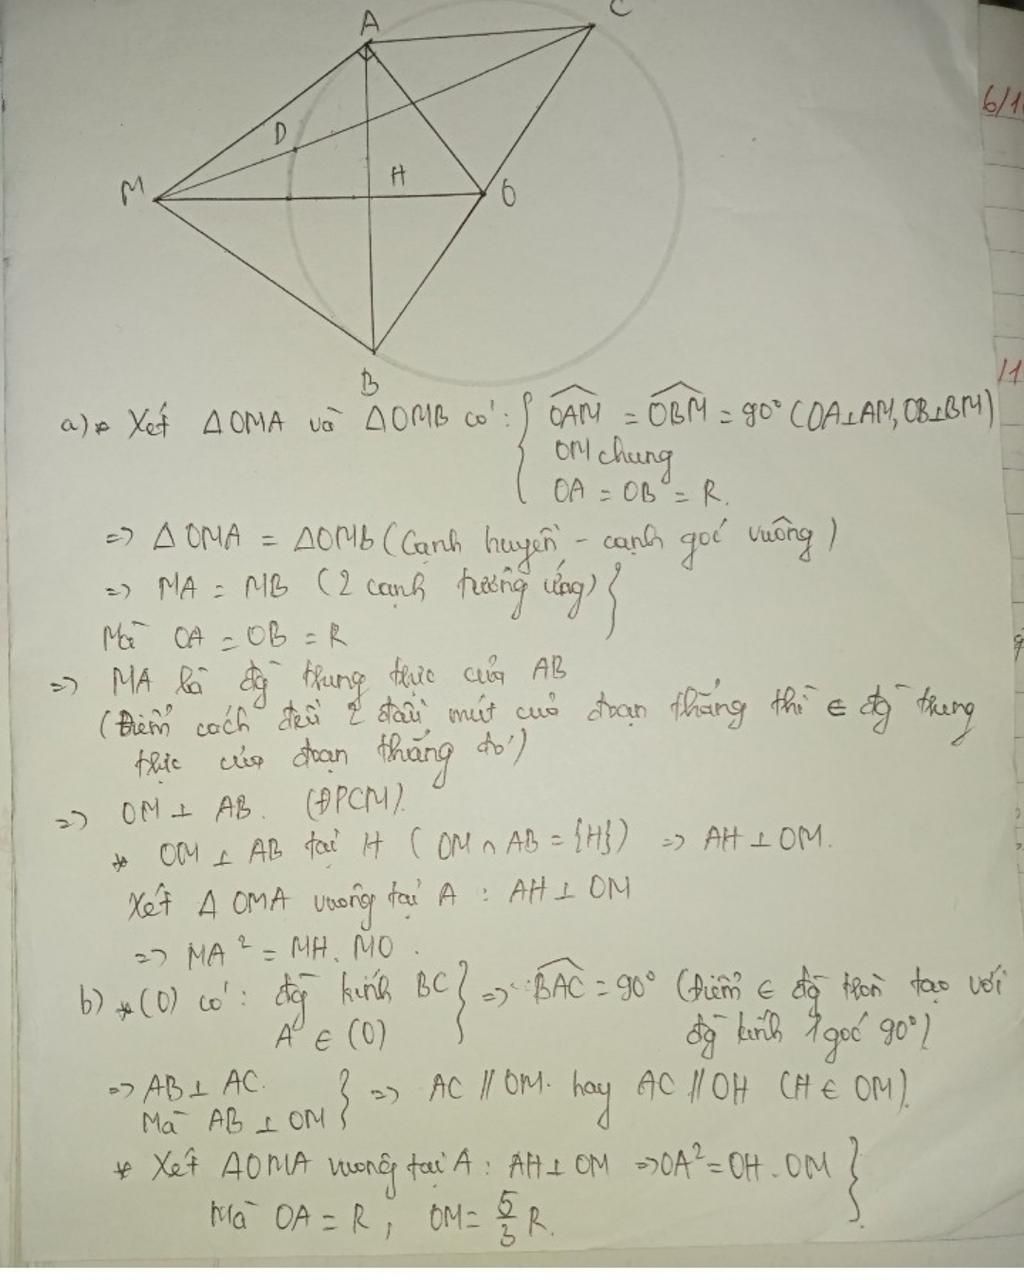 A
C
6/1
D
M
H
O
B
/1
a) * Xét ΔOMA và ΔOMB có: { OAM = OBM = 90° (OA⊥AM, OB⊥BM)
OM chung
OA = OB = R.
=> ΔOMA = ΔOMB (Cạnh huyền - cạnh góc vuông)
=> MA = MB (2 cạnh tương ứng) }
Mà OA = OB = R
=> MA là đg trung trực của AB
(Điểm cách đều 2 đầu mút của đoạn thẳng thì ∈ đg trung
trực của đoạn thẳng đó)
=> OM ⊥ AB. (ĐPCM).
* OM ⊥ AB tại H (OM ∩ AB = {H}) => AH ⊥ OM.
Xét Δ OMA vuông tại A : AH ⊥ OM
=> MA² = MH. MO.
b) * (O) có: đg kính BC } => BAC = 90° (Điểm ∈ đg tròn tạo với
A ∈ (O) đg kính 1 góc 90°)
=> AB ⊥ AC. } => AC // OM. hay AC // OH (H ∈ OM).
Mà AB ⊥ OM
* Xét ΔOMA vuông tại A : AH ⊥ OM => OA² = OH . OM }
Mà OA = R, OM = 5/3 R.